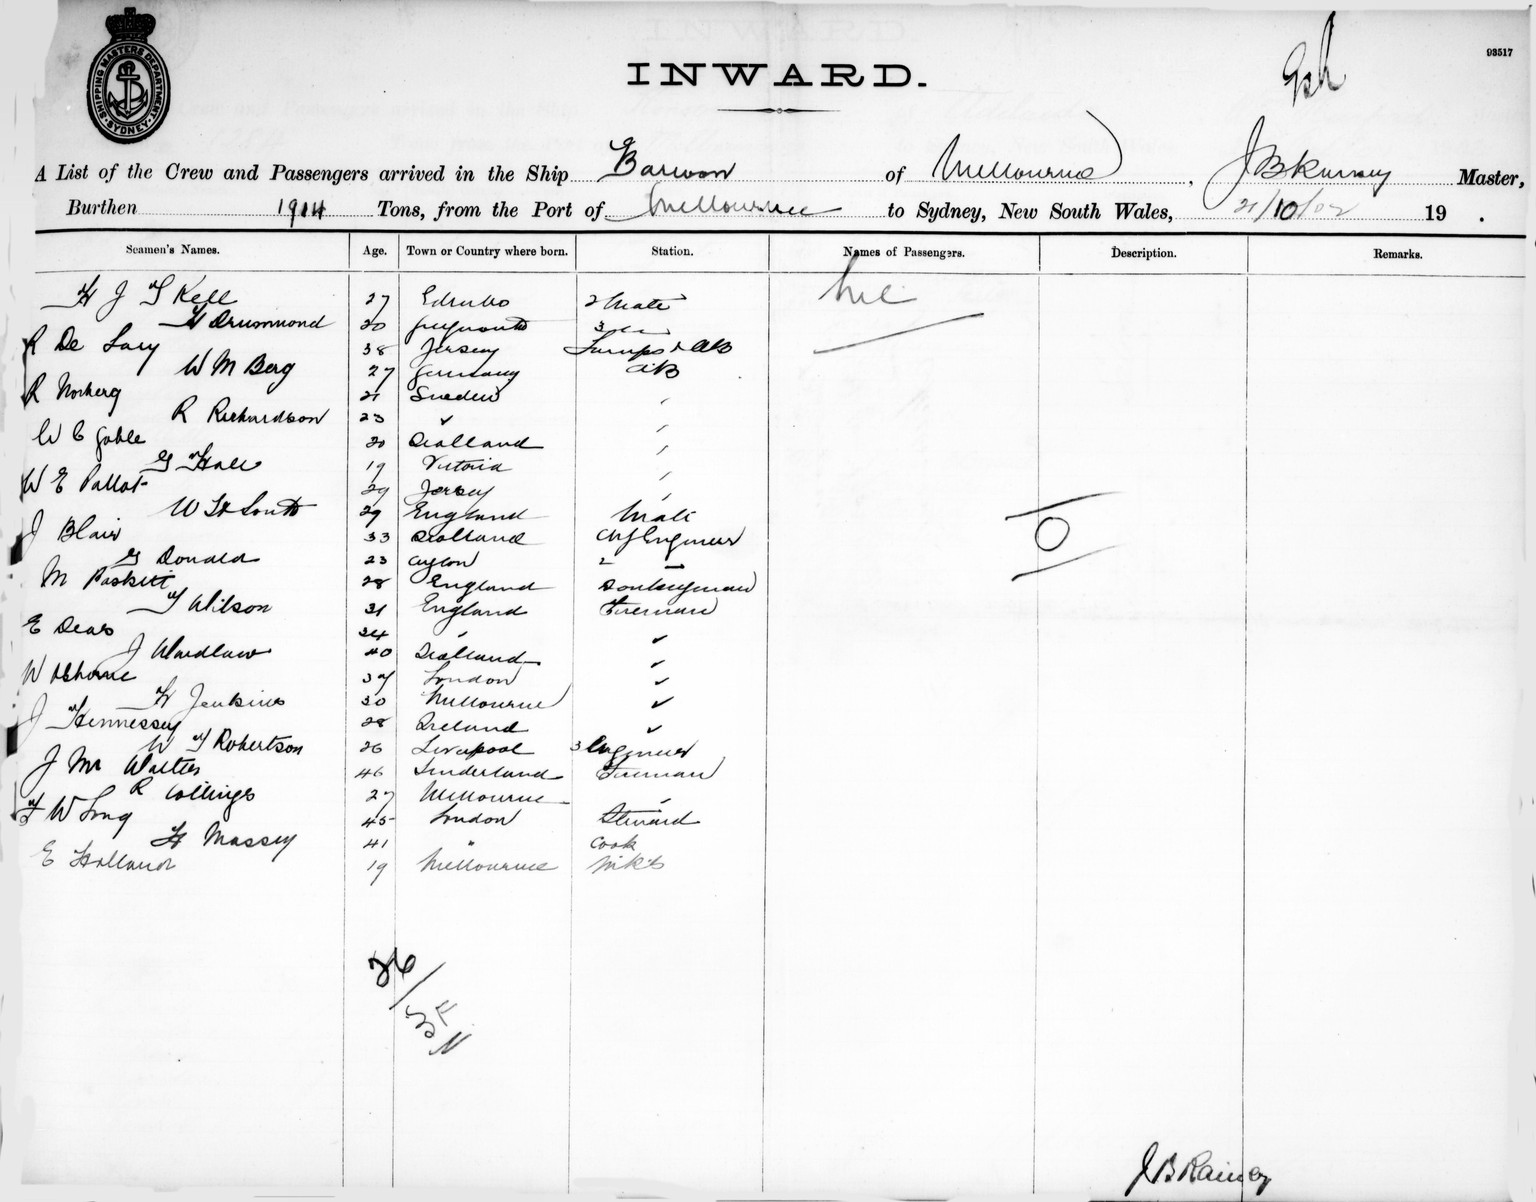 93517
SHIPPING MASTERS DEPARTMENT
SYDNEY
INWARD.
A List of the Crew and Passengers arrived in the Ship Barwon of Melbourne, J B Rainey Master,
Burthen 1914 Tons, from the Port of Melbourne to Sydney, New South Wales, 21/10/02 19 .
Seamen's Names. Age. Town or Country where born. Station. Names of Passengers. Description. Remarks.
H J T Kell 27 2 Mate Nil
H Drummond 20 Greymouth 3
R De Lary 38 Jersey Lamps & AB
W M Berg 27 Germany AB
R Norberg 21 Sweden
R Richardson 23
W C Goble 20 Scotland
G Hall 19 Victoria
W E Pallot 29 Jersey
W H South 29 England Mate
J Blair 33 Scotland Chf Engineer
G Donald 23 Ceylon 2
M Paskett 28 England Donkeyman
T Wilson 31 England Fireman
E Dear 34
J Wardlaw 40 Scotland
W Osborne 37 London
H Jenkins 30 Melbourne
J Hennessey 28 Ireland
W T Robertson 26 Liverpool 3 Engineer
J Mc Walters 46 Sunderland Fireman
R Collings 27 Melbourne
F W Long 45 London Steward
H Massey 41 " Cook
E Holland 19 Melbourne
26
J B Rainey